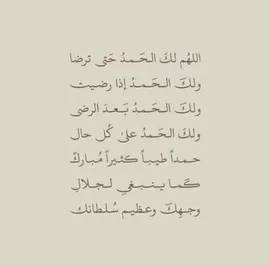 اللهُم لكَ الحَمدُ حَتى ترضا
ولكَ الحَمدُ إذا رضيت
ولكَ الحَمدُ بَعدَ الرضى
ولكَ الحَمدُ علىٰ كُل حال
حمداً طيباً كثيراً مُباركً
كَما ينبغي لجلالِ
وجهِكَ وعظيم سُلطانك